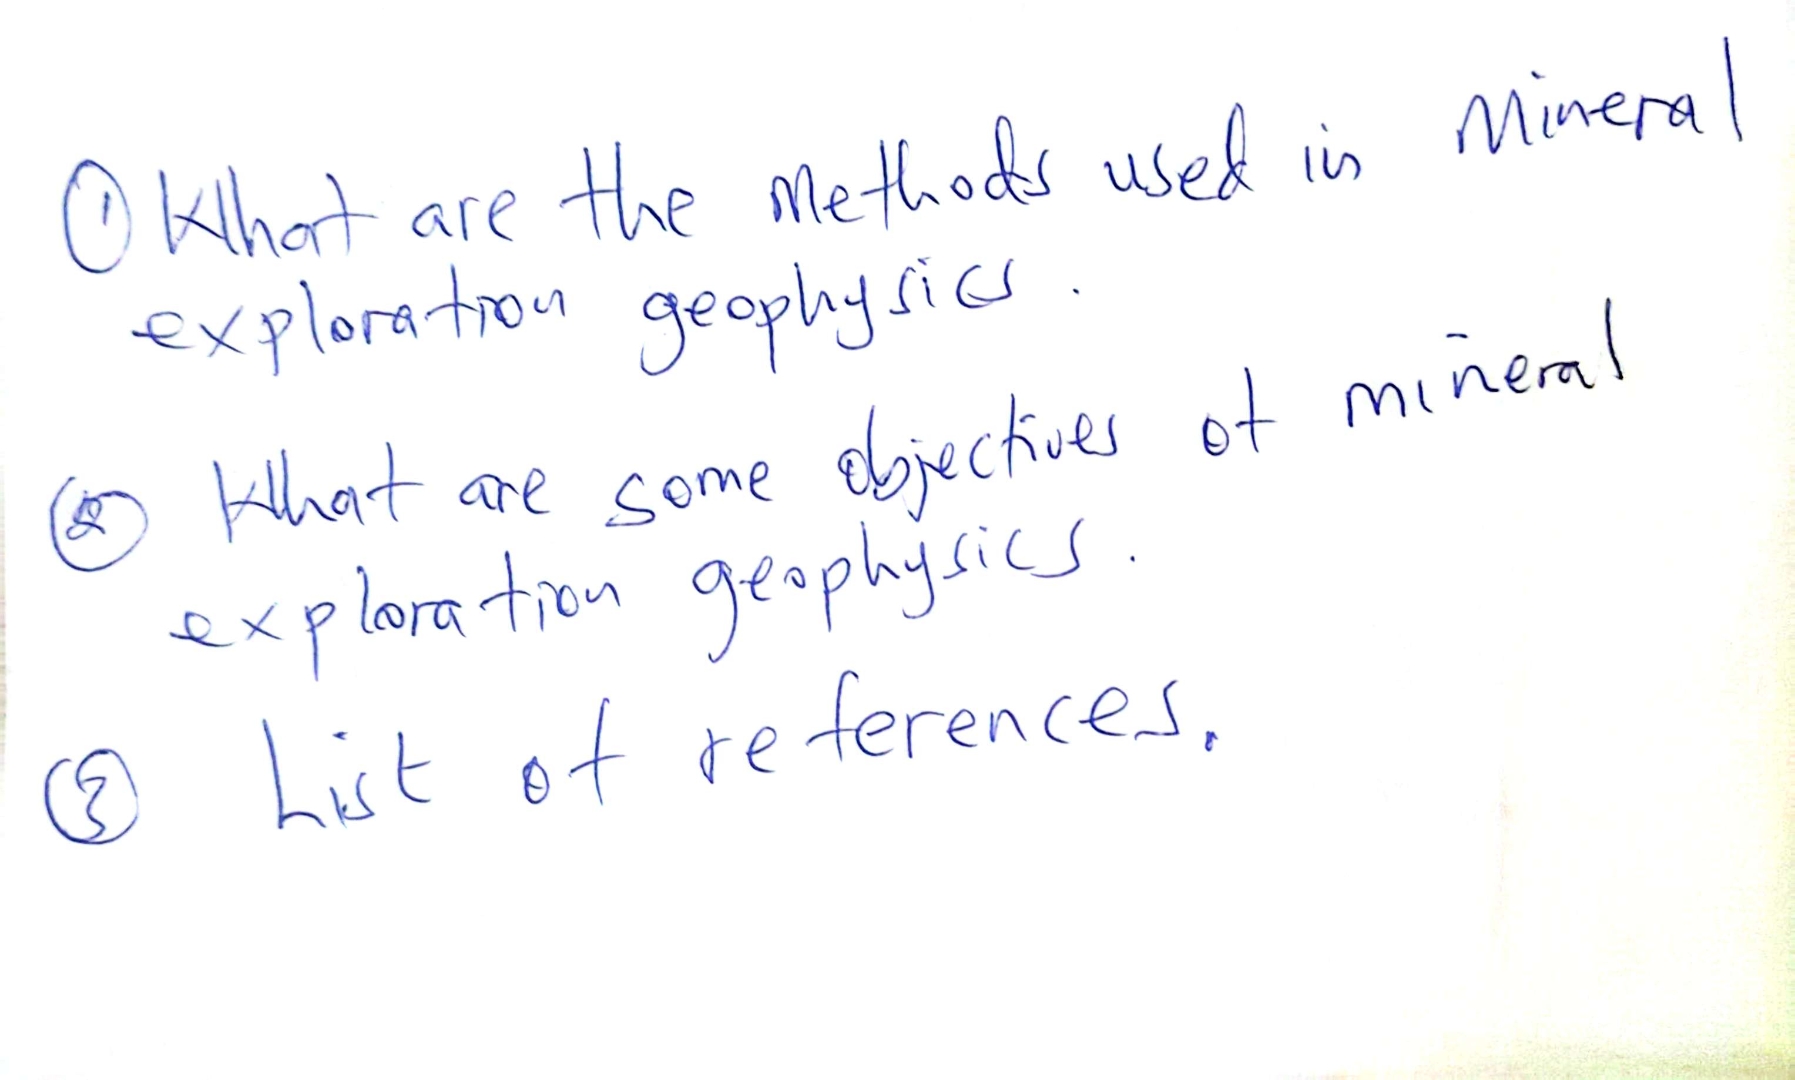 ① What are the Methods used in Mineral
exploration geophysics.
② What are some objectives of mineral
exploration geophysics.
③ List of references.